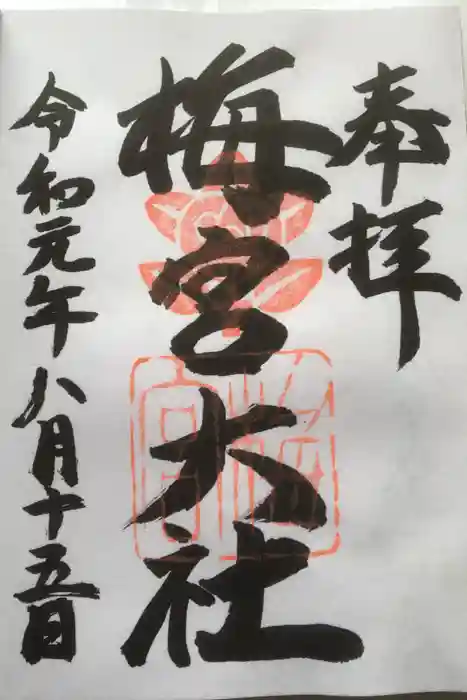 奉拝
梅宮大社
令和元年八月十五日
梅宮